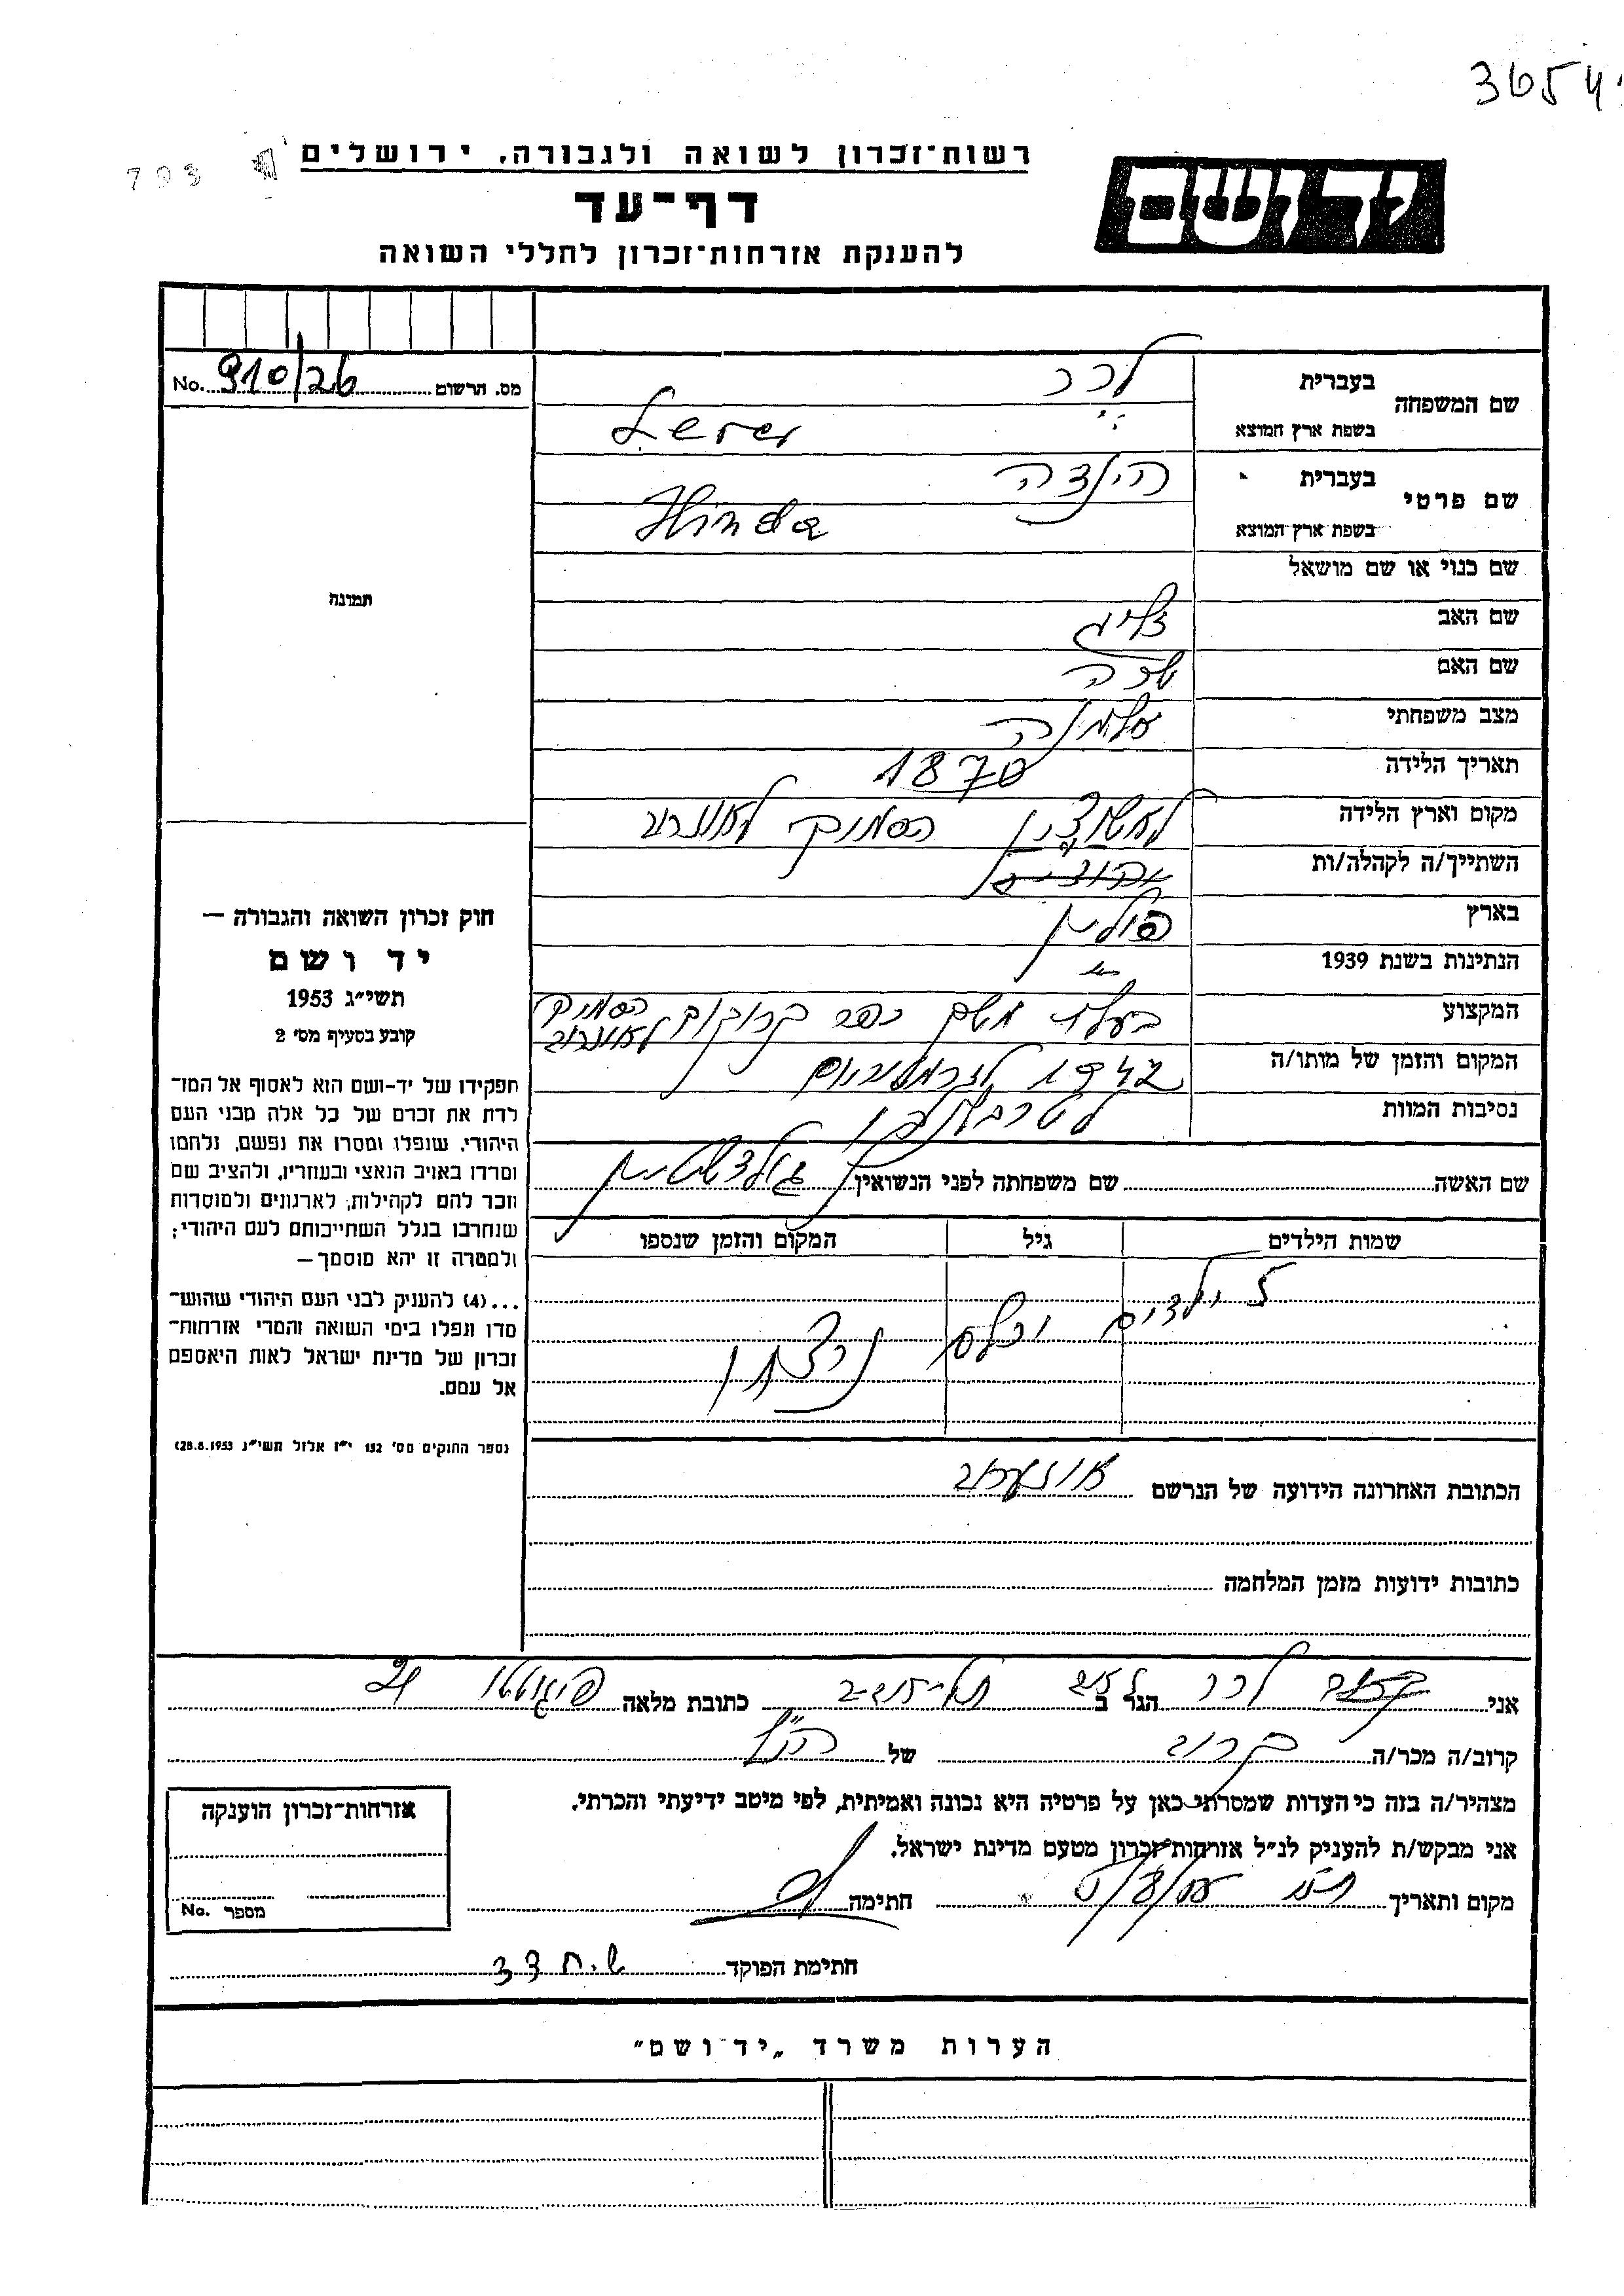 3654
703
רשות־זכרון לשואה ולגבורה, ירושלים
ידושם
דף־עד
להענקת אזרחות־זכרון לחללי השואה
מס. הרשום No. 910/26
שם המשפחה בעברית לרר
בשפת ארץ המוצא Lerer
שם פרטי בעברית הינדה
בשפת ארץ המוצא Hinda
שם כנוי או שם מושאל
שם האב זליג
שם האם שרה
מצב משפחתי אלמנה
תאריך הלידה 1870
מקום וארץ הלידה הסמוך
השתייך/ה לקהלה/ות
בארץ פולין
הנתינות בשנת 1939 "
המקצוע בעלת משק כפר הסמוך
המקום והזמן של מותו/ה 1942
נסיבות המוות לטרבלינקה
שם האשה שם משפחתה לפני הנשואין גולדשטיין
שמות הילדים גיל המקום והזמן שנספו
7 ילדים וכולם נרצחו
הכתובת האחרונה הידועה של הנרשם
כתובות ידועות מזמן המלחמה
תמונה
חוק זכרון השואה והגבורה —
יד ושם
תשי״ג 1953
קובע בסעיף מסי 2
תפקידו של יד-ושם הוא לאסוף אל המו־
לדת את זכרם של כל אלה מבני העם
היהודי, שנפלו ומסרו את נפשם, נלחמו
ומרדו באויב הנאצי ובעוזריו, ולהציב שם
וזכר להם לקהילות, לארגונים ולמוסדות
שנחרבו בגלל השתייכותם לעם היהודי;
ולמטרה זו יהא מוסמך—
...(4) להעניק לבני העם היהודי שהוש־
מדו ונפלו בימי השואה והמרי אזרחות־
זכרון של מדינת ישראל לאות היאספם
אל עמם.
נספר החוקים מס׳ 132 י״ז אלול תשי״ג 28.8.1953)
אני יעקב לרר הגר ב תל-אביב כתובת מלאה
קרוב/ה מכר/ה קרוב של הנ"ל
מצהיר/ה בזה כי העדות שמסרתי כאן על פרטיה היא נכונה ואמיתית, לפי מיטב ידיעתי והכרתי.
אני מבקש/ת להעניק לנ״ל אזרחות־זכרון מטעם מדינת ישראל.
מקום ותאריך חתימה
חתימת הפוקד
אזרחות־זכרון הוענקה
מספר No.
הערות משרד „יד ושם״